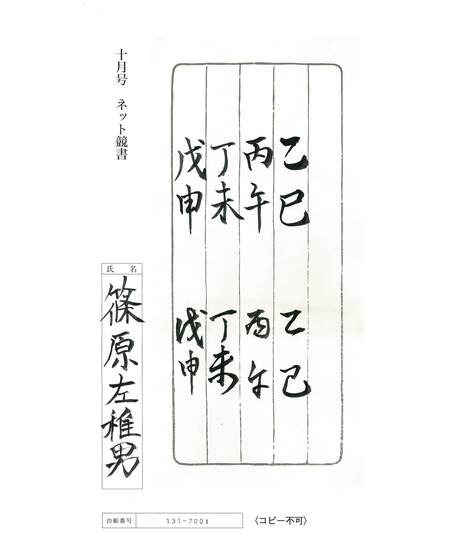 十月号 ネット競書
乙巳 乙巳
丙午 丙午
丁未 丁未
戊申 戊申
氏名
篠原左稚男
台帳番号 131-7001
〈コピー不可〉